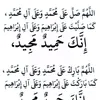 اللَّهُمَّ صَلِّ عَلَى مُحَمَّدٍ وَعَلَى آلِ مُحَمَّدٍ،
كَمَا صَلَّيْتَ عَلَى إِبْرَاهِيمَ وَعَلَى آلِ إِبْرَاهِيمَ
إِنَّكَ حَمِيدٌ مَجِيدٌ،
اللَّهُمَّ بَارِكْ عَلَى مُحَمَّدٍ وَعَلَى آلِ مُحَمَّدٍ،
كَمَا بَارَكْتَ عَلَى إِبْرَاهِيمَ وَعَلَى آلِ إِبْرَاهِيمَ
إِنَّكَ حَمِيدٌ مَجِيدٌ،